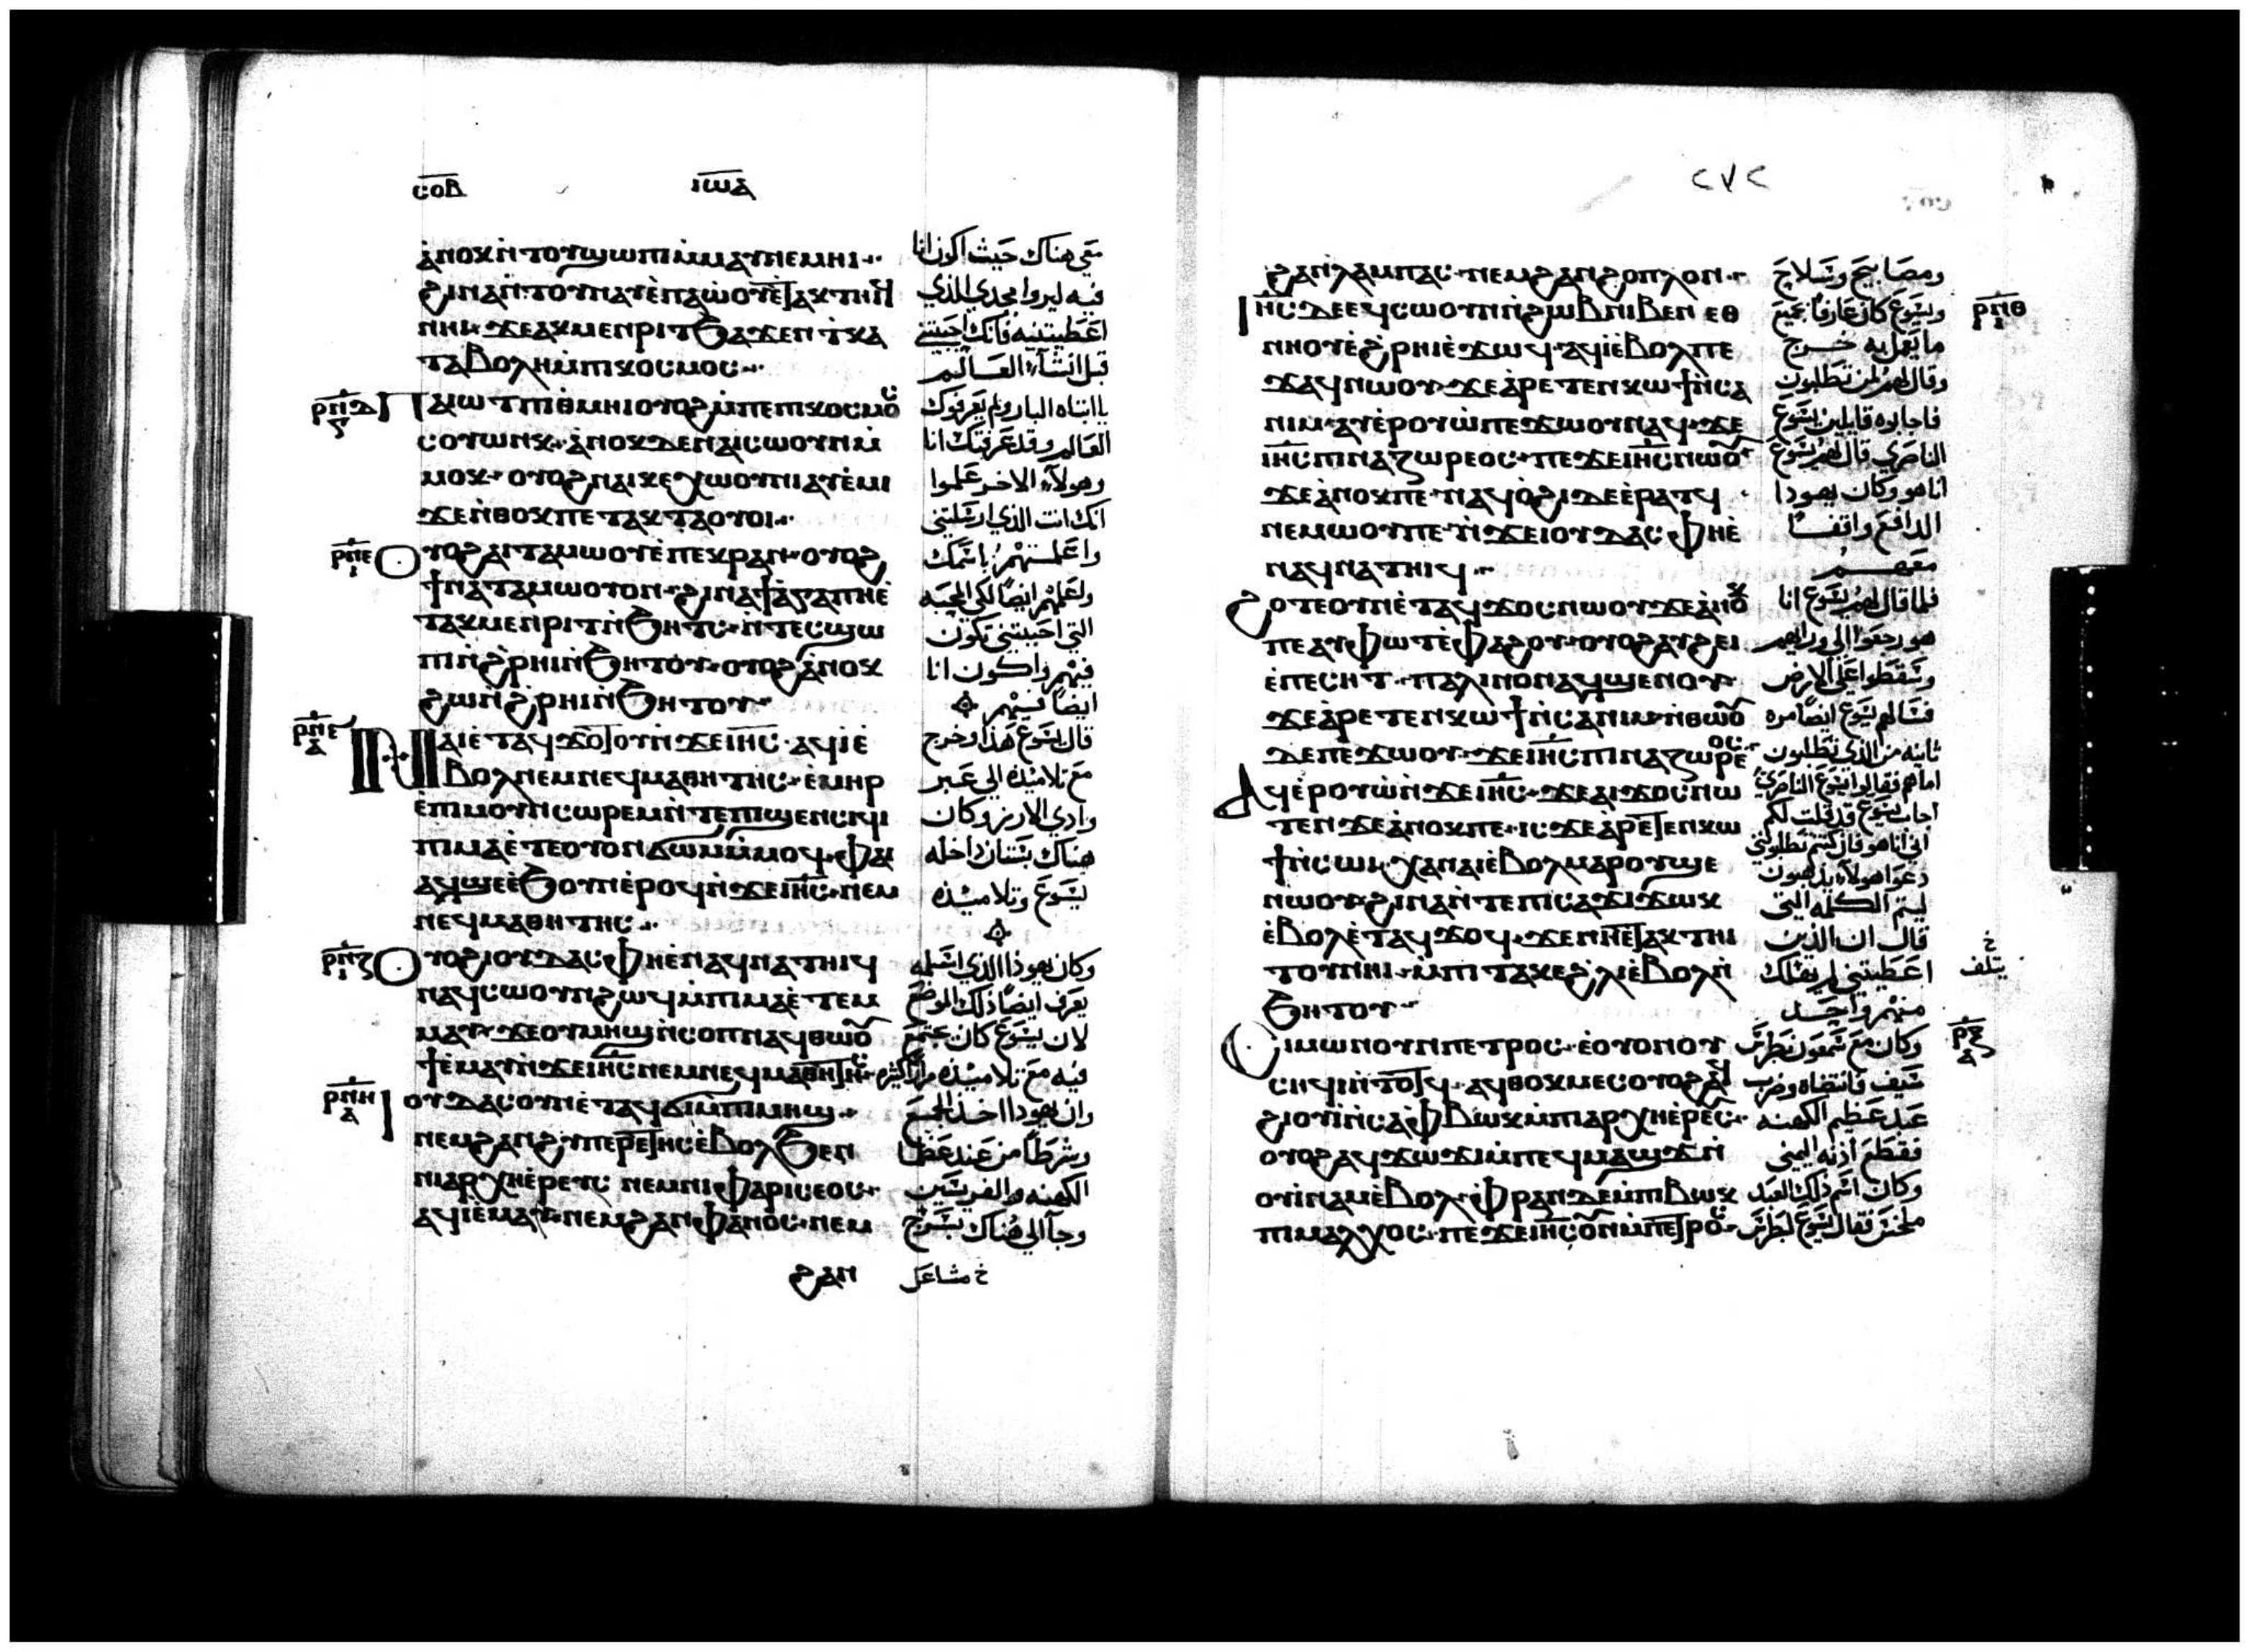 ⲥⲟⲃ
ⲓⲱⲁ
ⲁ̀ⲛⲟⲕⲛ̀ⲧⲟⲩϣⲱⲡⲓⲙ̀ⲙⲁⲩⲛⲉⲙⲏⲓ
ϩⲓⲛⲁⲛ̀ⲧⲟⲩⲛⲁⲩⲉ̀ⲡⲁⲱ̀ⲟⲩⲉ̀ⲧⲁⲕⲧⲏⲓϥ
ⲛⲏⲓ ϫⲉⲁⲕⲙⲉⲛⲣⲓⲧ ϧⲁϫⲉⲛ ⲧ̀ⲕⲁ
ⲧⲁⲃⲟⲗⲏⲙ̀ⲡⲕⲟⲥⲙⲟⲥ
ⲣⲡⲇ
ⲡⲁⲓⲱⲧ ⲡⲓⲑⲙⲏⲓ ⲟⲩⲟϩ ⲙ̀ⲡⲉ ⲡⲕⲟⲥⲙⲟⲥ
ⲥⲟⲩⲱⲛⲕ ⲁ̀ⲛⲟⲕ ⲇⲉ ⲛⲁⲓⲥⲱⲟⲩⲛ ⲙ̀
ⲙⲟⲕ ⲟⲩⲟϩ ⲛⲁⲓⲕⲉⲭⲱⲟⲩⲛⲓ ⲁⲩⲉ̀ⲙⲓ
ϫⲉ ⲛ̀ⲑⲟⲕ ⲡⲉⲧⲁⲕⲧⲁⲟⲩⲟⲓ
ⲣⲡⲉ
ⲟⲩⲟϩ ⲁⲓⲧⲁⲙⲱⲟⲩ ⲉ̀ⲡⲉⲕⲣⲁⲛ ⲟⲩⲟϩ
ϯⲛⲁⲧⲁⲙⲱⲟⲩ ⲟⲛ ϩⲓⲛⲁ ϯⲁ̀ⲅⲁⲡⲏ ⲉ̀
ⲧⲁⲕⲙⲉⲛⲣⲓⲧ ⲛ̀ϧⲏⲧⲥ ⲛ̀ⲧⲉⲥϣⲱ
ⲡⲓ ⲛ̀ϩ̀ⲣⲏⲓ ⲛ̀ϧⲏⲧⲟⲩ ⲟⲩⲟϩ ⲁ̀ⲛⲟⲕ
ϩⲱ ⲛ̀ϩ̀ⲣⲏⲓ ⲛ̀ϧⲏⲧⲟⲩ
ⲛⲁⲓ ⲉ̀ⲧⲁϥϫⲟⲧⲟⲩ ⲛ̀ϫⲉ ⲓⲏⲥ ⲁϥⲓ̀ ⲉ̀
ⲃⲟⲗ ⲛⲉⲙ ⲛⲉϥⲙⲁⲑⲏⲧⲏⲥ ⲉ̀ⲙⲏⲣ
ⲉ̀ⲡⲓⲙⲟⲩⲛⲥⲱⲣⲉⲙ ⲛ̀ⲧⲉ ⲡⲓϣⲉⲛⲥⲓϥⲓ
ⲡⲓⲙⲁ ⲉ̀ⲧⲉ ⲟⲩⲟⲛ ϭⲱⲙ ⲙ̀ⲙⲟϥ ⲫⲁⲓ
ⲁϥϣⲉ ⲉ̀ϧⲟⲩⲛ ⲉ̀ⲣⲟϥ ⲛ̀ϫⲉ ⲓⲏⲥ ⲛⲉⲙ
ⲛⲉϥⲙⲁⲑⲏⲧⲏⲥ
ⲣⲡⲍ
ⲟⲩⲟϩ ⲓⲟⲩⲇⲁⲥ ⲫⲏ ⲉ̀ⲛⲁϥⲛⲁⲧⲏⲓϥ
ⲛⲁϥⲥⲱⲟⲩⲛ ϩⲱϥ ⲙ̀ⲡⲓⲙⲁ ⲉ̀ⲧⲉⲙ
ⲙⲁⲩ ϫⲉ ⲟⲩⲙⲏϣ ⲛ̀ⲥⲟⲡ ⲛⲁϥⲑⲱⲟⲩ
ϯ ⲉ̀ⲙⲁⲩ ⲛ̀ϫⲉ ⲓⲏⲥ ⲛⲉⲙ ⲛⲉϥⲙⲁⲑⲏⲧⲏⲥ
ⲣⲡⲏ
ⲓⲟⲩⲇⲁⲥ ⲟⲩⲛ ⲉ̀ⲧⲁϥϭⲓ ⲙ̀ⲡⲓⲙⲏϣ
ⲛⲉⲙ ϩⲁⲛϩⲩⲡⲉⲣⲉⲧⲏⲥ ⲉ̀ⲃⲟⲗ ϧⲉⲛ
ⲛⲓⲁⲣⲭⲏⲉ̀ⲣⲉⲩⲥ ⲛⲉⲙ ⲛⲓⲫⲁⲣⲓⲥⲉⲟⲥ
ⲁϥⲓ̀ ⲉ̀ⲙⲁⲩ ⲛⲉⲙ ϩⲁⲛⲫⲁⲛⲟⲥ ⲛⲉⲙ
ϩⲁⲛ
معي هناك حيث اكون انا
فيه ليروا مجدي الذي
اعطيتنيه فانك احببتني
قبل انشاء العالم
يا ابتاه البار ولم يعرفوك
العالم وقد عرفتك انا
وهولاء الاخر علموا
انك انت الذي ارسلتني
واعلمتهم باسمك
واعلمهم ايضا لكي المحبه
التي احببتني تكون
فيهم واكون انا
ايضا فيهم
قال يسوع هذا وخرج
مع تلاميذه الي عبر
وادي الارز وكان
هناك بستان داخله
يسوع وتلاميذه
وكان يهوذا الذي اسلمه
يعرف ايضا ذلك الموضع
لان يسوع كان يجتمع
فيه مع تلاميذه مرارا كثيره
وان يهودا اخذ الجمع
وشرطا من عند عظما
الكهنه والفريسيين
وجا الي هناك بسرج
خ مشاعل
٢٧٢
ϩⲁⲛⲗⲁⲙⲡⲁⲥ ⲛⲉⲙ ϩⲁⲛϩⲟⲡⲗⲟⲛ
ⲣⲡⲑ
ⲓⲏⲥ ⲇⲉ ⲉϥⲥⲱⲟⲩⲛ ⲛ̀ϩⲱⲃ ⲛⲓⲃⲉⲛ ⲉⲑ
ⲛⲏⲟⲩ ⲉ̀ϩ̀ⲣⲏⲓ ⲉ̀ϫⲱϥ ⲁϥⲓ̀ ⲉ̀ⲃⲟⲗ ⲡⲉ
ϫⲁϥ ⲛⲱⲟⲩ ϫⲉ ⲁ̀ⲣⲉⲧⲉⲛⲕⲱϯ ⲛ̀ⲥⲁ
ⲛⲓⲙ ⲁⲩⲉ̀ⲣⲟⲩⲱ̀ ⲡⲉϫⲱⲟⲩ ⲛⲁϥ ϫⲉ
ⲓⲏⲥ ⲡⲓⲛⲁⲍⲱⲣⲉⲟⲥ ⲡⲉϫⲉ ⲓⲏⲥ ⲛⲱⲟⲩ
ϫⲉ ⲁ̀ⲛⲟⲕ ⲡⲉ ⲛⲁϥⲟ̀ϩⲓ ⲇⲉ ⲉ̀ⲣⲁⲧϥ
ⲛⲉⲙⲱⲟⲩ ⲡⲉ ⲛ̀ϫⲉ ⲓⲟⲩⲇⲁⲥ ⲫⲏ ⲉ̀
ⲛⲁϥⲛⲁⲧⲏⲓϥ
ϩⲟⲧⲉ ⲟⲩⲛ ⲉ̀ⲧⲁϥϫⲟⲥ ⲛⲱⲟⲩ ϫⲉ ⲁ̀ⲛⲟⲕ
ⲡⲉ ⲁⲩⲫⲱⲧ ⲉ̀ⲫⲁϩⲟⲩ ⲟⲩⲟϩ ⲁⲩϩⲉⲓ
ⲉ̀ⲡⲉⲥⲏⲧ ⲡⲁⲗⲓⲛ ⲟⲛ ⲁϥϣⲉⲛⲟⲩ
ϫⲉ ⲁ̀ⲣⲉⲧⲉⲛⲕⲱϯ ⲛ̀ⲥⲁ ⲛⲓⲙ ⲛ̀ⲑⲱⲟⲩ
ⲇⲉ ⲡⲉϫⲱⲟⲩ ϫⲉ ⲓⲏⲥ ⲡⲓⲛⲁⲍⲱⲣⲉⲟⲥ
ⲁϥⲉ̀ⲣⲟⲩⲱ̀ ⲛ̀ϫⲉ ⲓⲏⲥ ϫⲉ ⲁⲓϫⲟⲥ ⲛⲱ
ⲧⲉⲛ ϫⲉ ⲁ̀ⲛⲟⲕ ⲡⲉ ⲓⲥϫⲉ ⲁ̀ⲣⲉⲧⲉⲛⲕⲱ
ϯ ⲛ̀ⲥⲱⲓ ⲭⲁ ⲛⲁⲓ ⲉ̀ⲃⲟⲗ ⲙⲁⲣⲟⲩϣⲉ
ⲛⲱⲟⲩ ϩⲓⲛⲁ ⲛ̀ⲧⲉ ⲡⲓⲥⲁϫⲓ ϫⲱⲕ
ⲉ̀ⲃⲟⲗ ⲉ̀ⲧⲁϥϫⲟϥ ϫⲉ ⲛⲏ ⲉ̀ⲧⲁⲕⲧⲏⲓ
ⲧⲟⲩ ⲛⲏⲓ ⲙ̀ⲡⲓⲧⲁⲕⲉ ϩ̀ⲗⲓ ⲉ̀ⲃⲟⲗ ⲛ̀
ϧⲏⲧⲟⲩ
ⲣⲝ
ⲁ
ⲥⲓⲙⲱⲛ ⲟⲩⲛ ⲡⲉⲧⲣⲟⲥ ⲉ̀ⲟⲩⲟⲛ ⲟⲩ
ⲥⲏϥⲓ ⲛ̀ⲧⲟⲧϥ ⲁϥⲑⲟⲕⲙⲉⲥ ⲟⲩⲟϩ ⲁϥ
ϩⲓⲟⲩⲓ̀ ⲛ̀ⲥⲁ ⲫ̀ⲃⲱⲕ ⲙ̀ⲡⲁⲣⲭⲏⲉ̀ⲣⲉⲩⲥ
ⲟⲩⲟϩ ⲁϥϫⲱϫⲓ ⲙ̀ⲡⲉϥⲙⲁϣϫ ⲛ̀
ⲟⲩⲓ̀ⲛⲁⲙ ⲉ̀ⲃⲟⲗ ⲫ̀ⲣⲁⲛ ⲇⲉ ⲙ̀ⲡⲓⲃⲱⲕ
ⲡⲉ ⲙⲁⲗⲭⲟⲥ ⲡⲉϫⲉ ⲓⲏⲥ ⲟⲩⲛ ⲙ̀ⲡⲉⲧⲣⲟⲥ
ومصابيح وسلاح
ويسوع كان عارفا بجميع
ما يعمل به خرج
وقال لهم لمن تطلبون
فاجابوه قايلين يسوع
الناصري قال لهم يسوع
انا هو وكان يهودا
الدافع واقفا
معهم
فلما قال لهم يسوع انا
هو رجعوا الي ورايهم
وسقطوا علي الارض
فسالهم يسوع ايضا مره
ثانيه من الذي تطلبون
اما هم فقالوا يسوع الناصري
اجاب يسوع قد قلت لكم
اني انا هو فان كنتم تطلبوني
دعوا هولاء يذهبون
ليتم الكلمه التي
قال ان الذين
اعطيتني لم يهلك
خ
يتلف
منهم واحد
وكان مع سمعون بطرس
سيف فانتضاه وضرب
عبد عظيم الكهنه
فقطع اذنه اليمني
وكان اسم ذلك العبد
ملخس فقال يسوع لبطرس